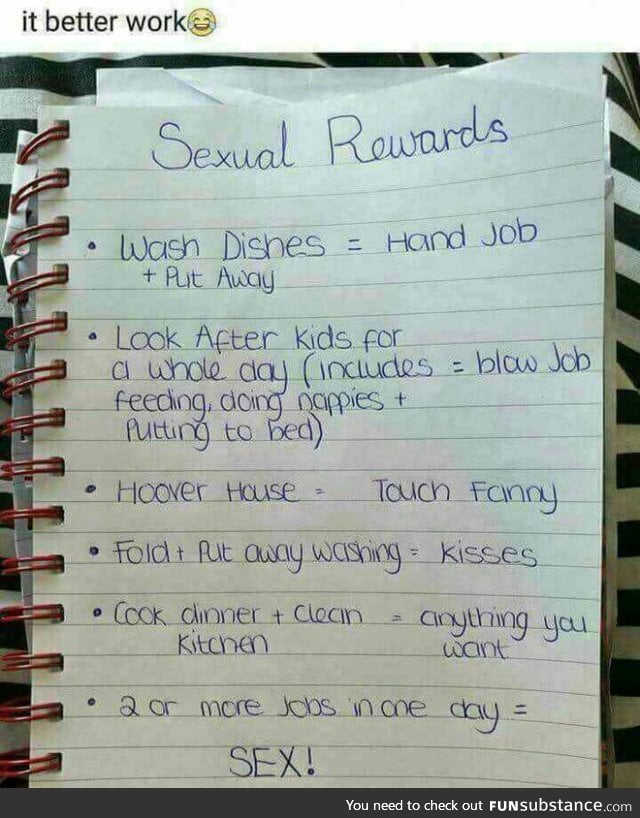 it better work😂
Sexual Rewards
• Wash Dishes = Hand Job
+ Put Away
• Look After Kids for
a whole day (includes = blow Job
feeding, doing nappies +
Putting to bed)
• Hoover House = Touch Fanny
• Fold + Put away washing = kisses
• Cook dinner + clean = anything you
kitchen want
• 2 or more Jobs in one day =
SEX!
You need to check out FUNsubstance.com